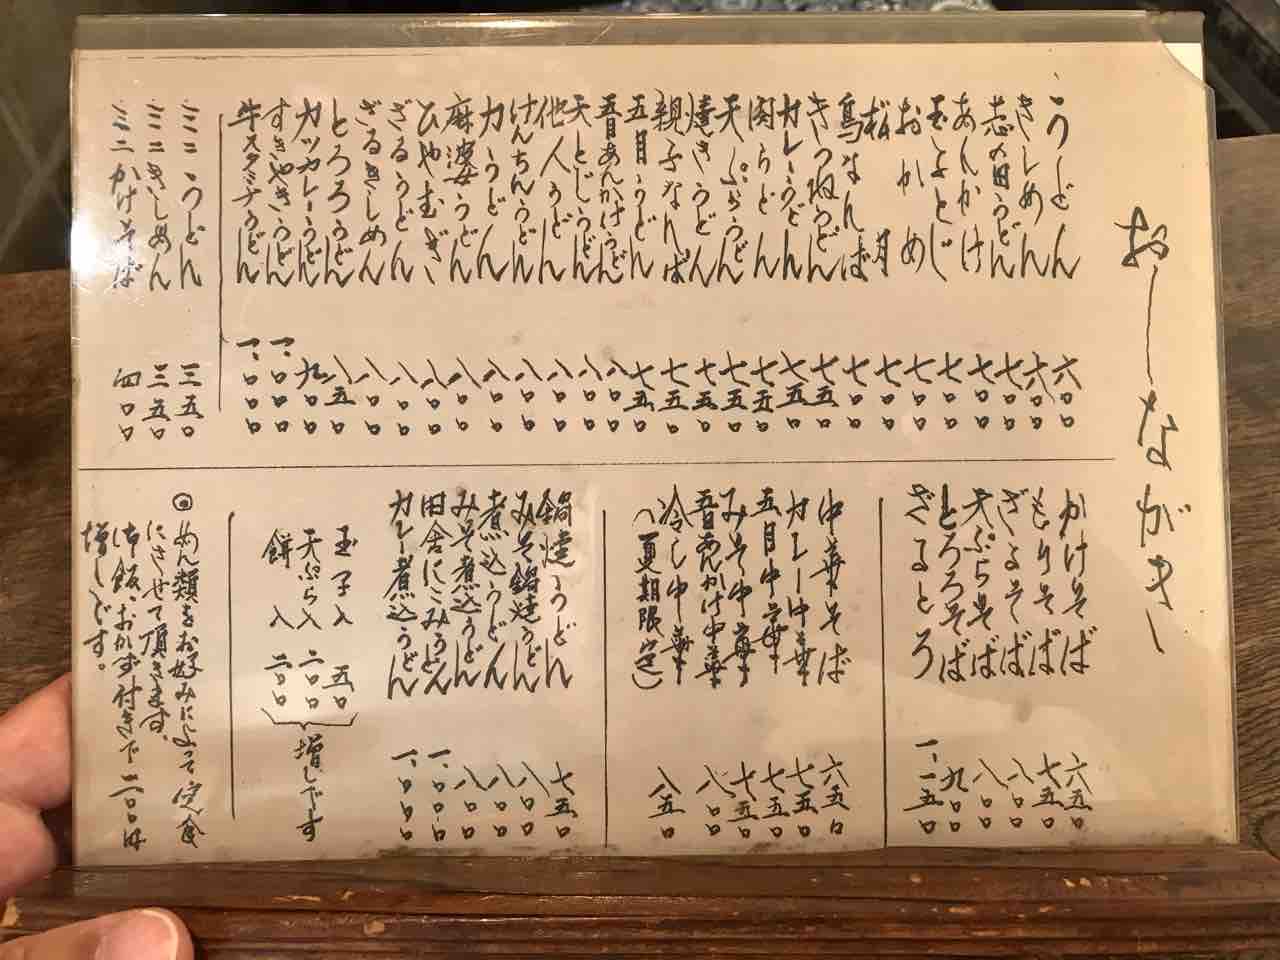 おしながき
うどん 六〇〇
きしめん 六〇〇
志の田うどん 七〇〇
あんかけ 七〇〇
玉子とじ 七〇〇
おかめ 七〇〇
松月 七〇〇
鳥なんば 七〇〇
きつねうどん 七五〇
カレーうどん 七五〇
肉うどん 七五〇
天ぷらうどん 七五〇
焼きうどん 七五〇
親子なんば 七五〇
五目うどん 七五〇
五目あんかけうどん 八〇〇
天とじうどん 八〇〇
他人うどん 八〇〇
けんちんうどん 八〇〇
力うどん 八〇〇
麻婆うどん 八〇〇
ひやむぎ 八〇〇
ざるうどん 八〇〇
ざるきしめん 八〇〇
とろろうどん 八五〇
カツカレーうどん 九〇〇
すきやきうどん 一、〇〇〇
牛スタミナうどん 一、〇〇〇
ミニうどん 三五〇
ミニきしめん 三五〇
ミニかけそば 四〇〇
かけそば 六五〇
もりそば 七五〇
ざるそば 八〇〇
天ぷらそば 八〇〇
とろろそば 九〇〇
ざるとろ 一、一五〇
中華そば 六五〇
カレー中華 七五〇
五目中華 七五〇
みそ中華 七五〇
五目あんかけ中華 八〇〇
冷し中華 八五〇
（夏期限定）
鍋焼うどん 七五〇
みそ鍋焼うどん 八〇〇
煮込うどん 八〇〇
みそ煮込うどん 八〇〇
田舎にこみうどん 一、〇〇〇
カレー煮込うどん 一、〇〇〇
玉子入 五〇
天ぷら入 二〇〇
餅入 二〇〇
増しです
◎めん類をお好みによって定食
にさせて頂きます。
御飯、おかず付きで二〇〇円
増しです。